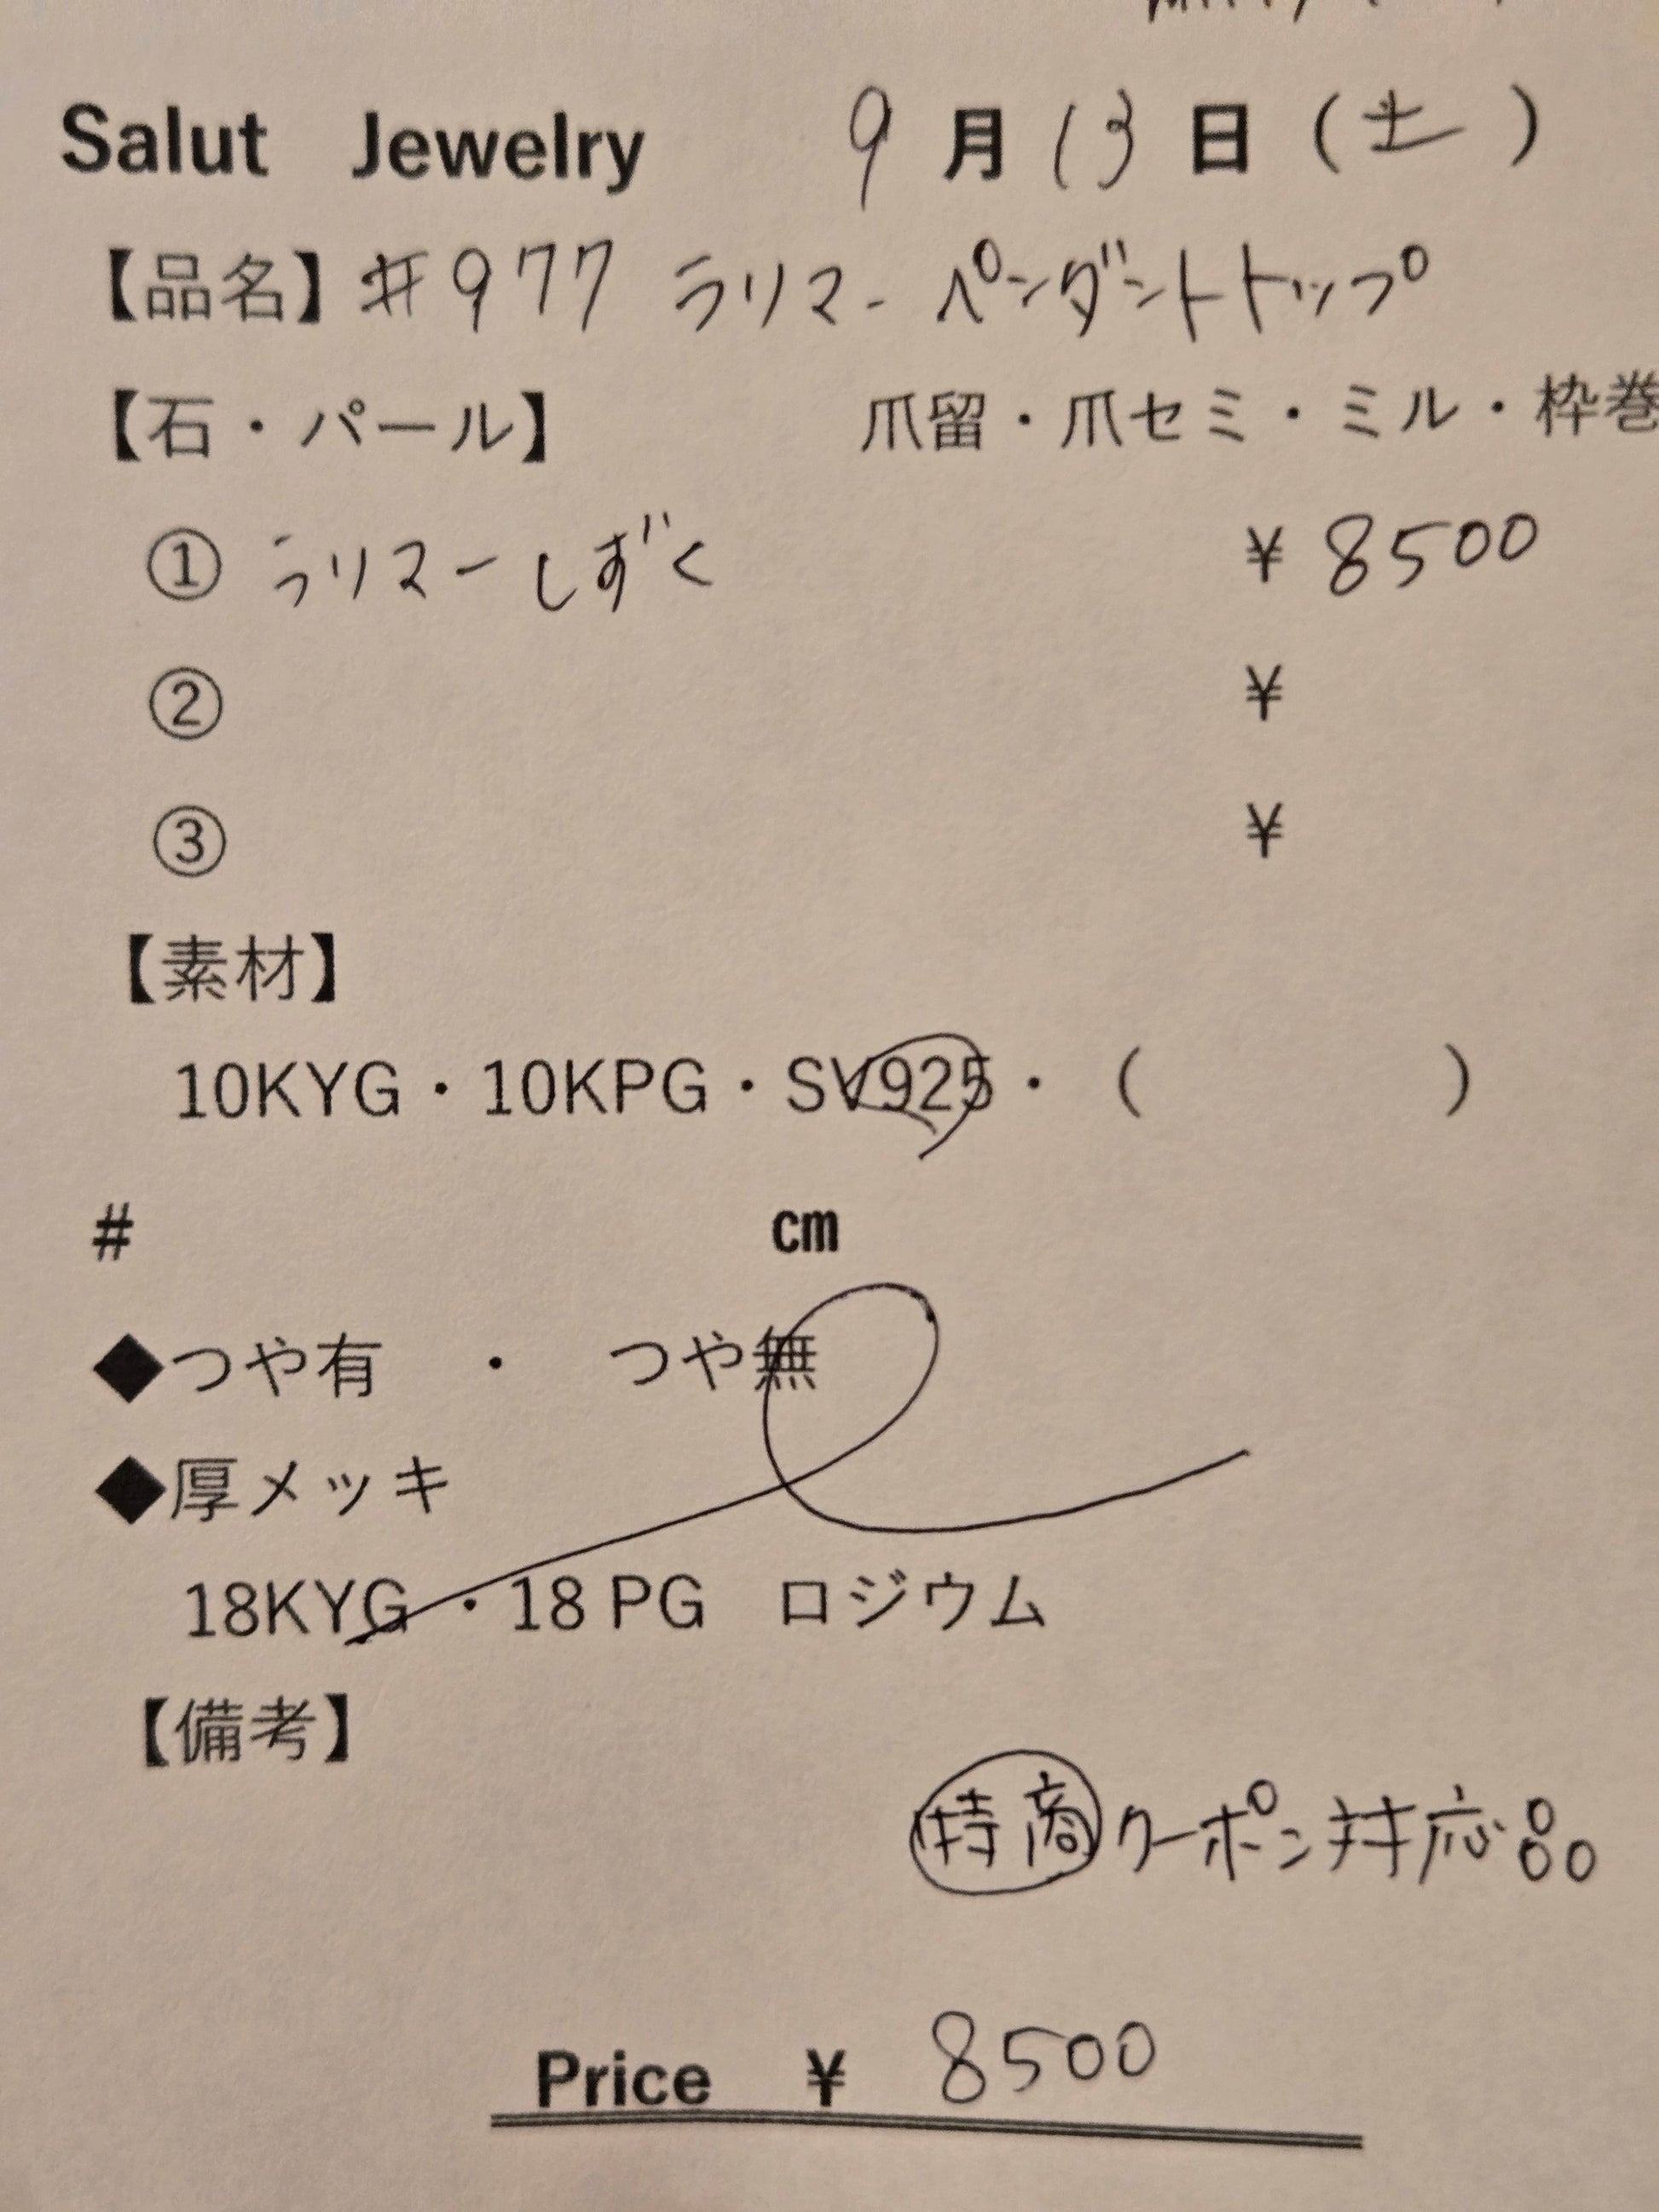 Salut Jewelry 9月13日(土)
【品名】#977 ラリマーペンダントトップ
【石・パール】 爪留・爪セミ・ミル・枠巻
① ラリマーしずく ¥8500
② ¥
③ ¥
【素材】
10KYG・10KPG・SV925・( )
# cm
◆つや有 ・ つや無
◆厚メッキ
18KYG ・18 PG ロジウム
【備考】
特商 クーポン対応品
Price ¥ 8500